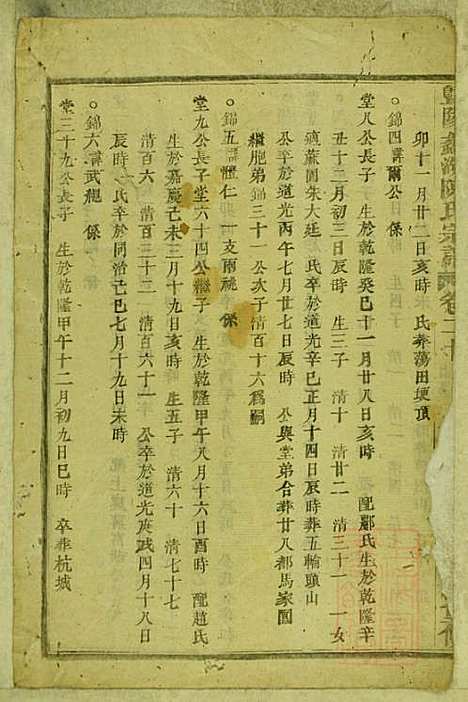 暨陽鑑湖陳氏宗譜 卷二十
卯十一月廿二日亥時 氏葬蕩田埂頂
○錦四諱爾公 係
堂八公長子 生於乾隆癸巳十一月廿八日亥時 配鄭氏生於乾隆辛
丑十二月初三日辰時 生三子 清十 清廿二 清三十一 一女
適蕭園朱大廷 氏卒於道光辛巳正月十四日辰時葬五輪頭山
公卒於道光丙午七月廿七日辰時 公與堂弟合葬廿八都馬家園
繼胞弟錦三十一公次子清百十六爲嗣
○錦五諱懷仁 一支兩祧 係
堂九公長子堂六十四公繼子 生於乾隆甲午八月十六日酉時 配趙氏
生於嘉慶己未三月十九日亥時 生五子 清六十 清七十七
清百六 清百三十二 清百六十一 公卒於道光庚戌四月十八日
辰時 氏卒於同治己巳七月十九日未時
○錦六諱武龍 係
堂三十九公長子 生於乾隆甲午十二月初九日巳時 卒葬杭城